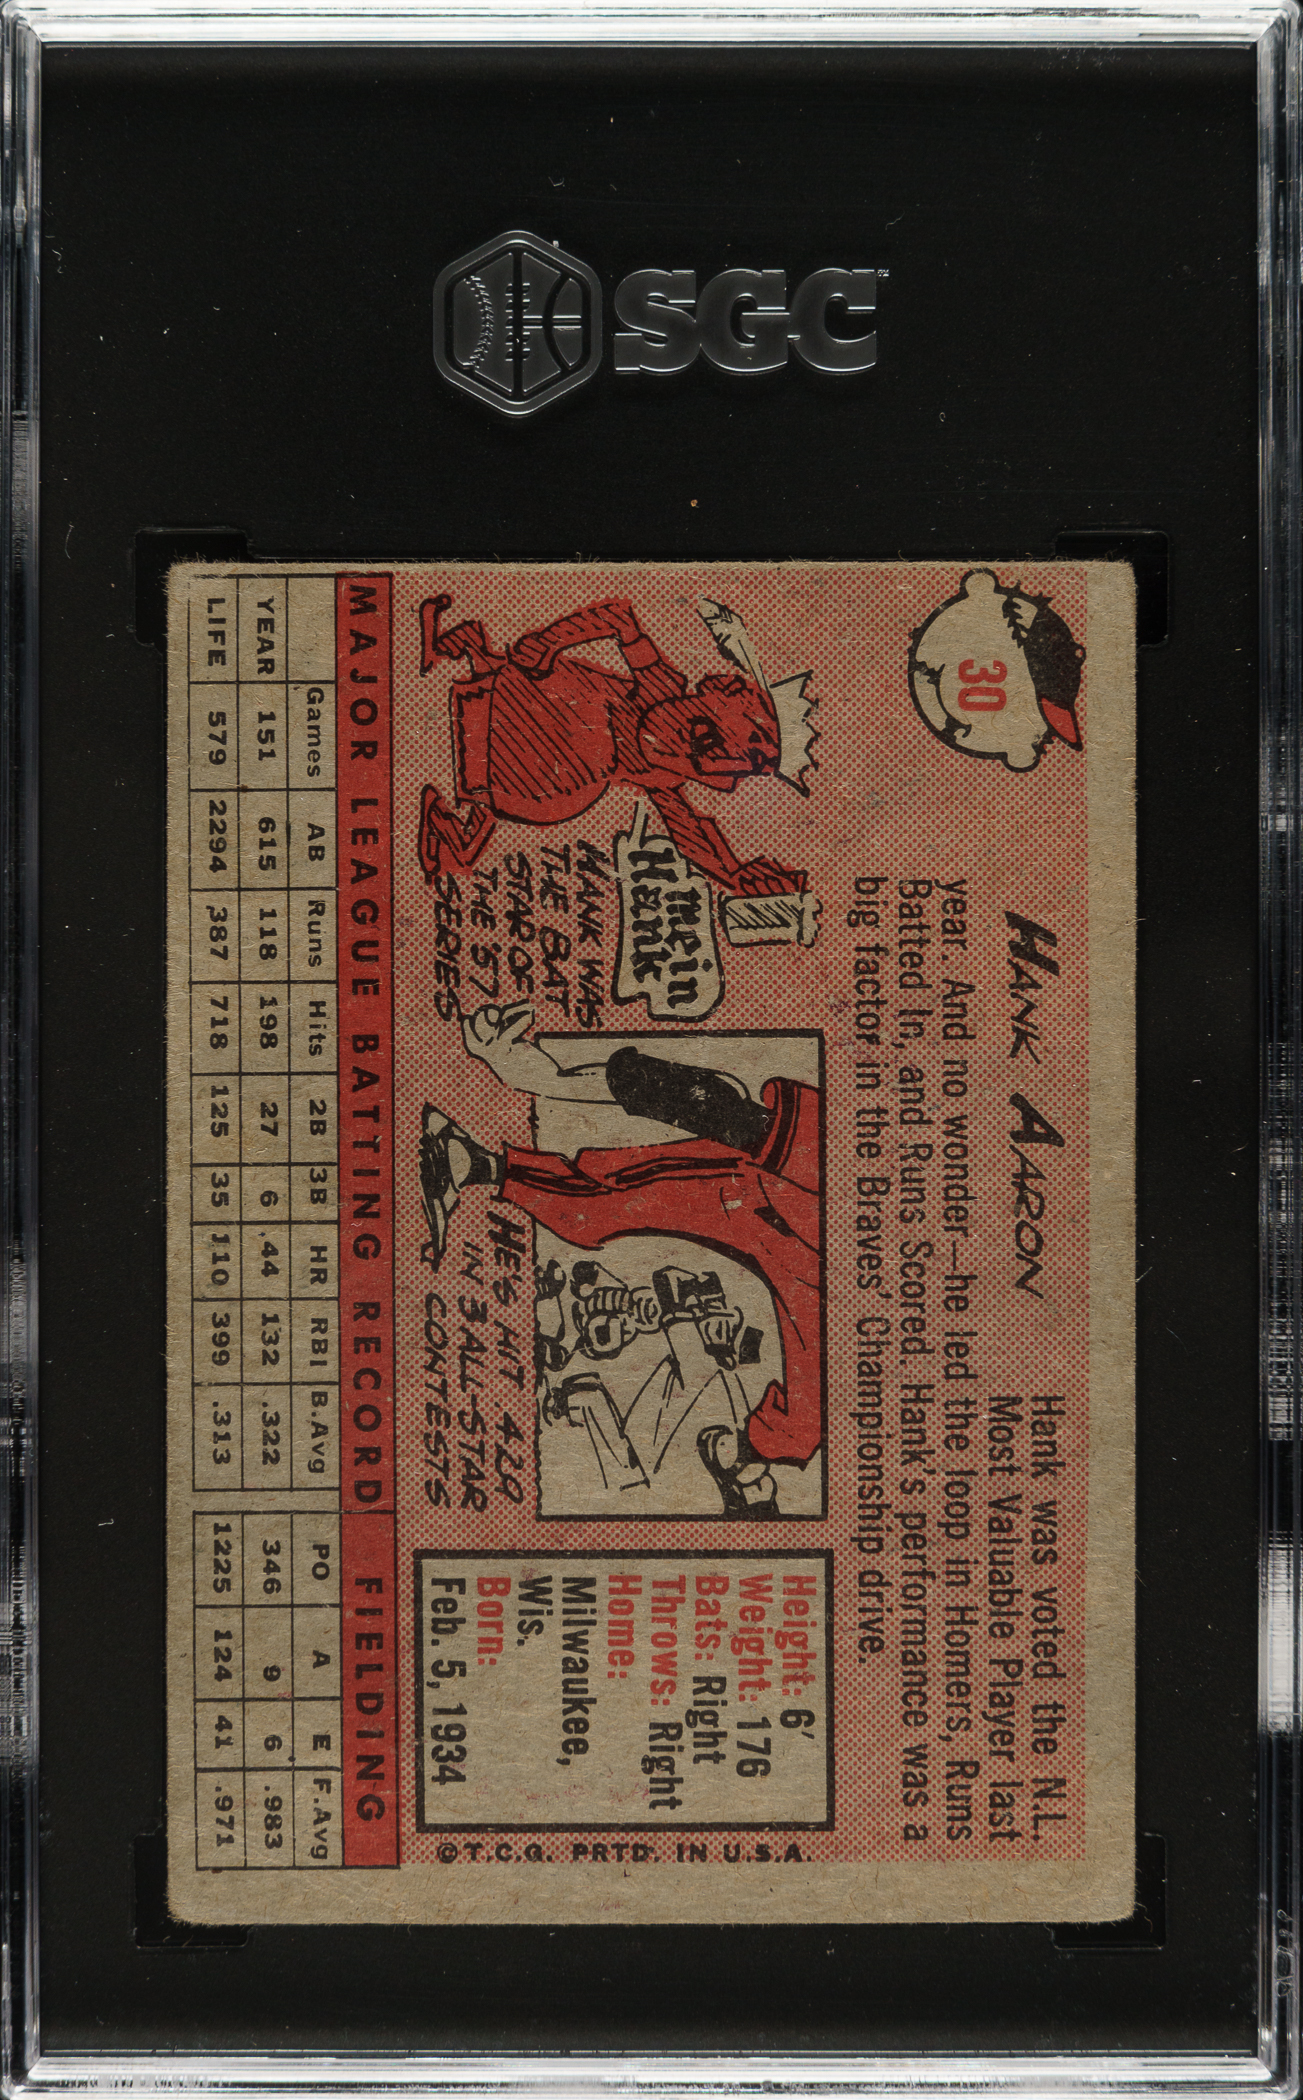 SGC
30
HANK AARON
Hank was voted the N.L.
Most Valuable Player last
year. And no wonder—he led the loop in Homers, Runs
Batted In, and Runs Scored. Hank's performance was a
big factor in the Braves' Championship drive.
mein
Hank
HANK WAS
THE BAT
STAR OF
THE '57
SERIES
HE'S HIT .429
IN 3 ALL-STAR
CONTESTS
Height: 6'
Weight: 176
Bats: Right
Throws: Right
Home:
Milwaukee,
Wis.
Born:
Feb. 5, 1934
© T.C.G. PRTD. IN U.S.A.
MAJOR LEAGUE BATTING RECORD FIELDING
Games AB Runs Hits 2B 3B HR RBI B.Avg PO A E F.Avg
YEAR 151 615 118 198 27 6 44 132 .322 346 9 6 .983
LIFE 579 2294 387 718 125 35 110 399 .313 1225 124 41 .971